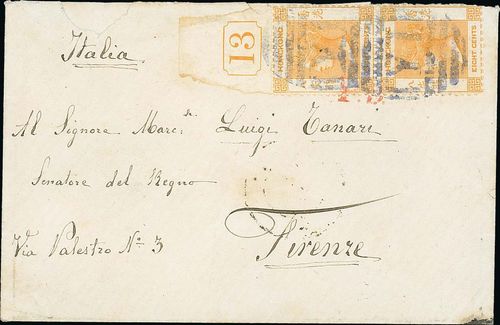 Italia
13
HONGKONG
EIGHT CENTS
Al Signore March. Luigi Tanari
Senatore del Regno
Via Palestro No. 3
Firenze